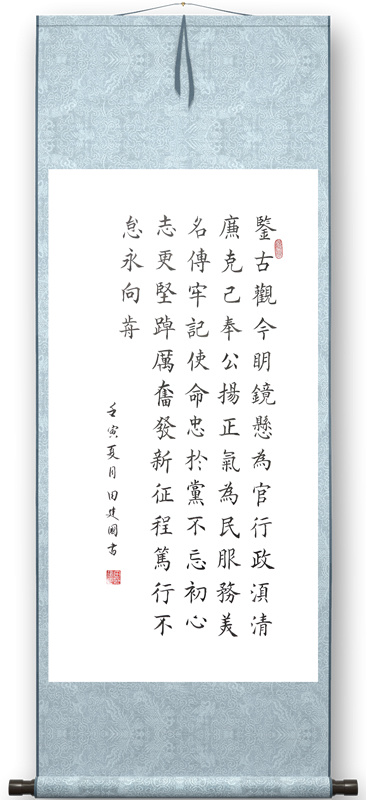 鑒古觀今明鏡懸為官行政須清
廉克己奉公揚正氣為民服務美
名傳牢記使命忠於黨不忘初心
志更堅踔厲奮發新征程篤行不
怠永向前
壬寅夏月田建國書